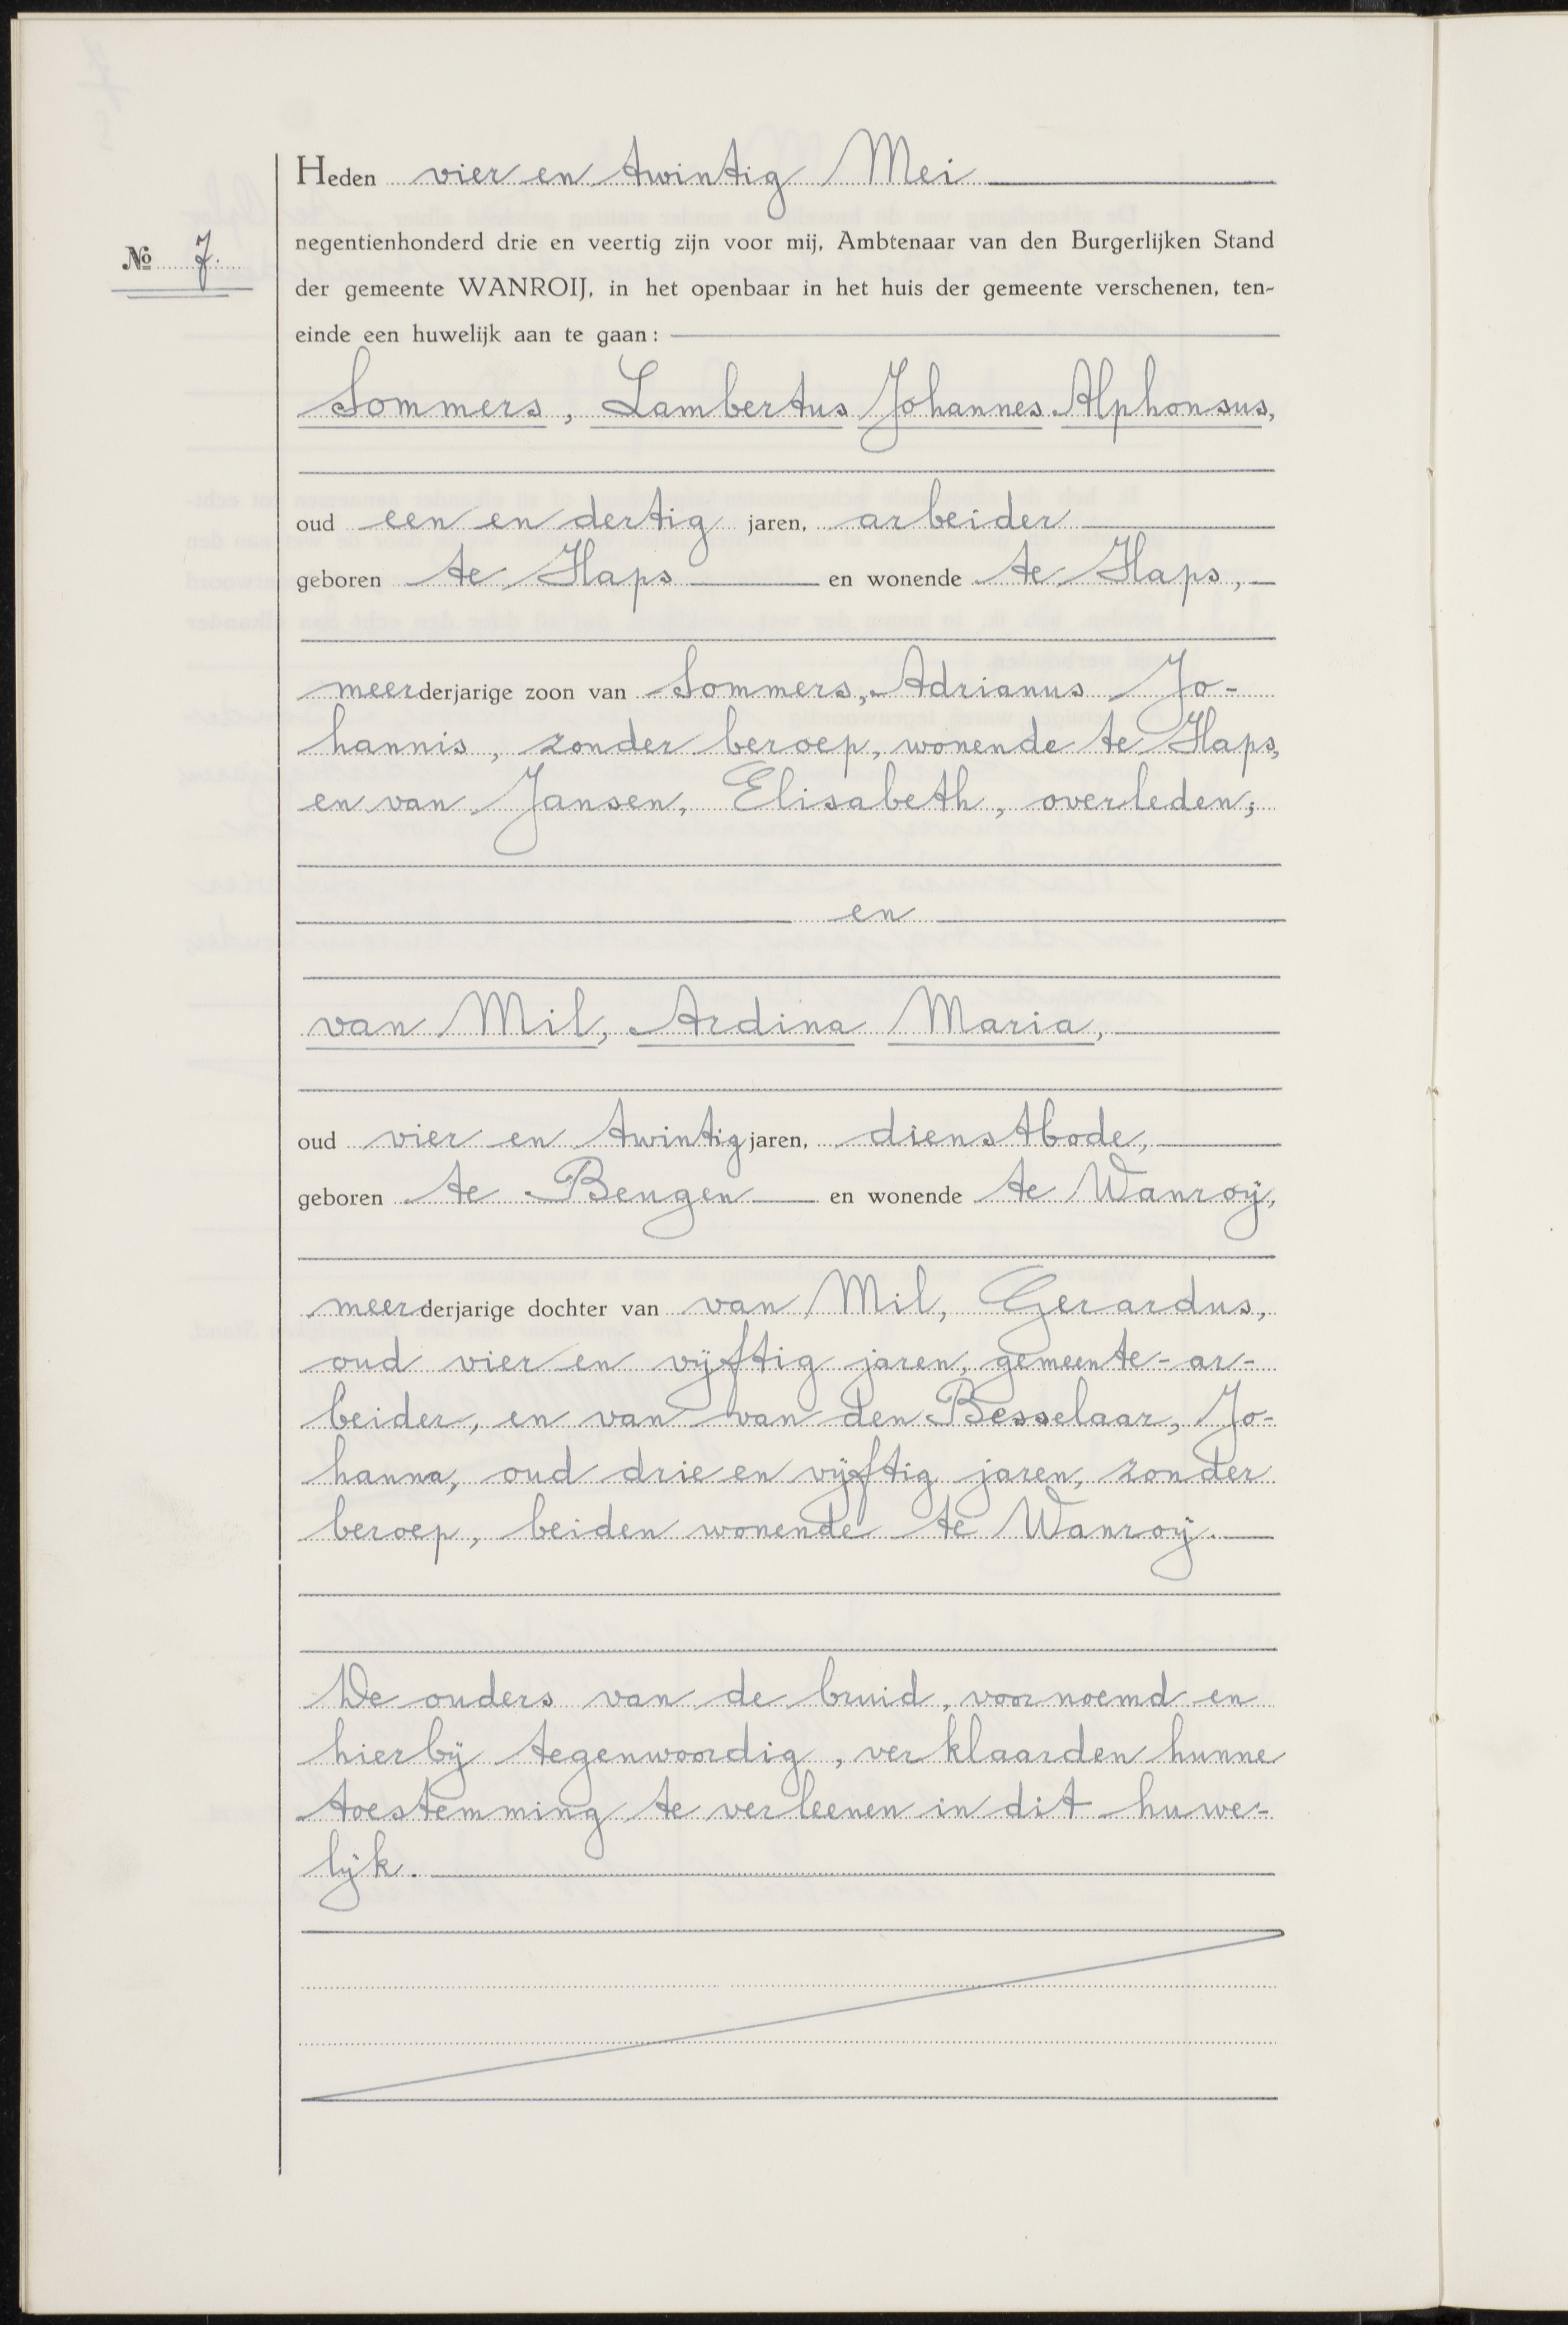 Heden vier en twintig Mei
negentienhonderd drie en veertig zijn voor mij, Ambtenaar van den Burgerlijken Stand
No 7.
der gemeente WANROIJ, in het openbaar in het huis der gemeente verschenen, ten-
einde een huwelijk aan te gaan:
Sommers, Lambertus Johannes Alphonsus,
oud een en dertig jaren, arbeider
geboren te Haps en wonende te Haps,
meerderjarige zoon van Sommers, Adrianus Jo-
hannis, zonder beroep, wonende te Haps,
en van Jansen, Elisabeth, overleden;
en
van Mil, Ardina Maria,
oud vier en twintig jaren, dienstbode,
geboren te Beugen en wonende te Wanroij,
meerderjarige dochter van van Mil, Gerardus,
oud vier en vijftig jaren, gemeente-ar-
beider, en van van den Besselaar, Jo-
hanna, oud drie en vijftig jaren, zonder
beroep, beiden wonende te Wanroij.
De ouders van de bruid, voornoemd en
hierbij tegenwoordig, verklaarden hunne
toestemming te verleenen in dit huwe-
lijk.